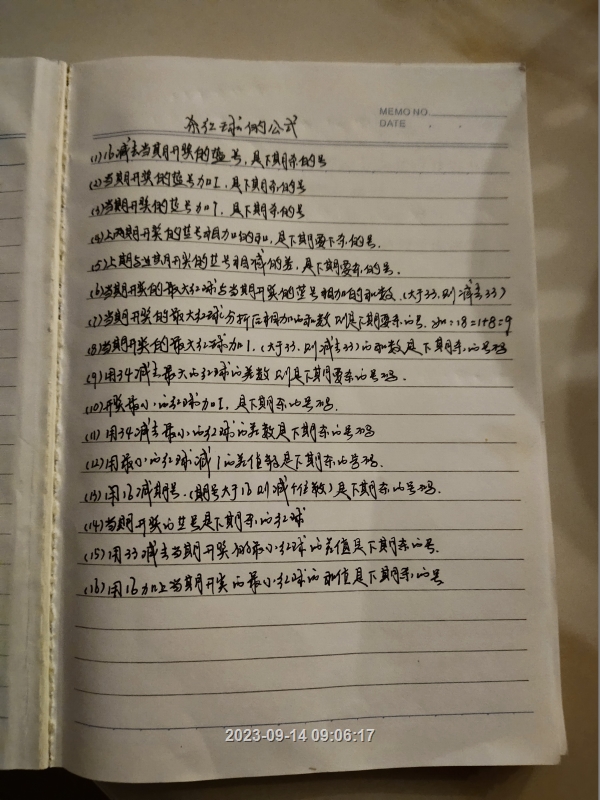 MEMO NO.
DATE
杀红球的公式
(1)16减去当期开奖的蓝号,是下期杀的号
(2)当期开奖的蓝号加1,是下期杀的号
(3)当期开奖的蓝号加7,是下期杀的号
(4)上两期开奖的蓝号相加的和,是下期要下杀的号.
(5)上期与当期开奖的蓝号相减的差,是下期要杀的号.
(6)当期开奖的最大红球与当期开奖的蓝号相加的和数(大于33,则减去33)
(7)当期开奖的最大红球分拆后相加的和数则是下期要杀的号.如:18=1+8=9
(8)当期开奖的最大红球加1,(大于33.则减去33)的和数是下期杀的号码
(9)用34减去最大的红球的差数则是下期要杀的号码.
(10)开奖最小的红球加1,是下期杀的号码.
(11)用34减去最小的红球的差数是下期杀的号码
(12)用最小的红球减1的差值数是下期杀的号码.
(13)用16减期号.(期号大于16则减个位数)是下期杀的号码.
(14)当期开奖的蓝号是下期杀的红球
(15)用33减去当期开奖的最小红球的差值是下期杀的号.
(16)用16加上当期开奖的最小红球的和值是下期杀的号
2023-09-14 09:06:17